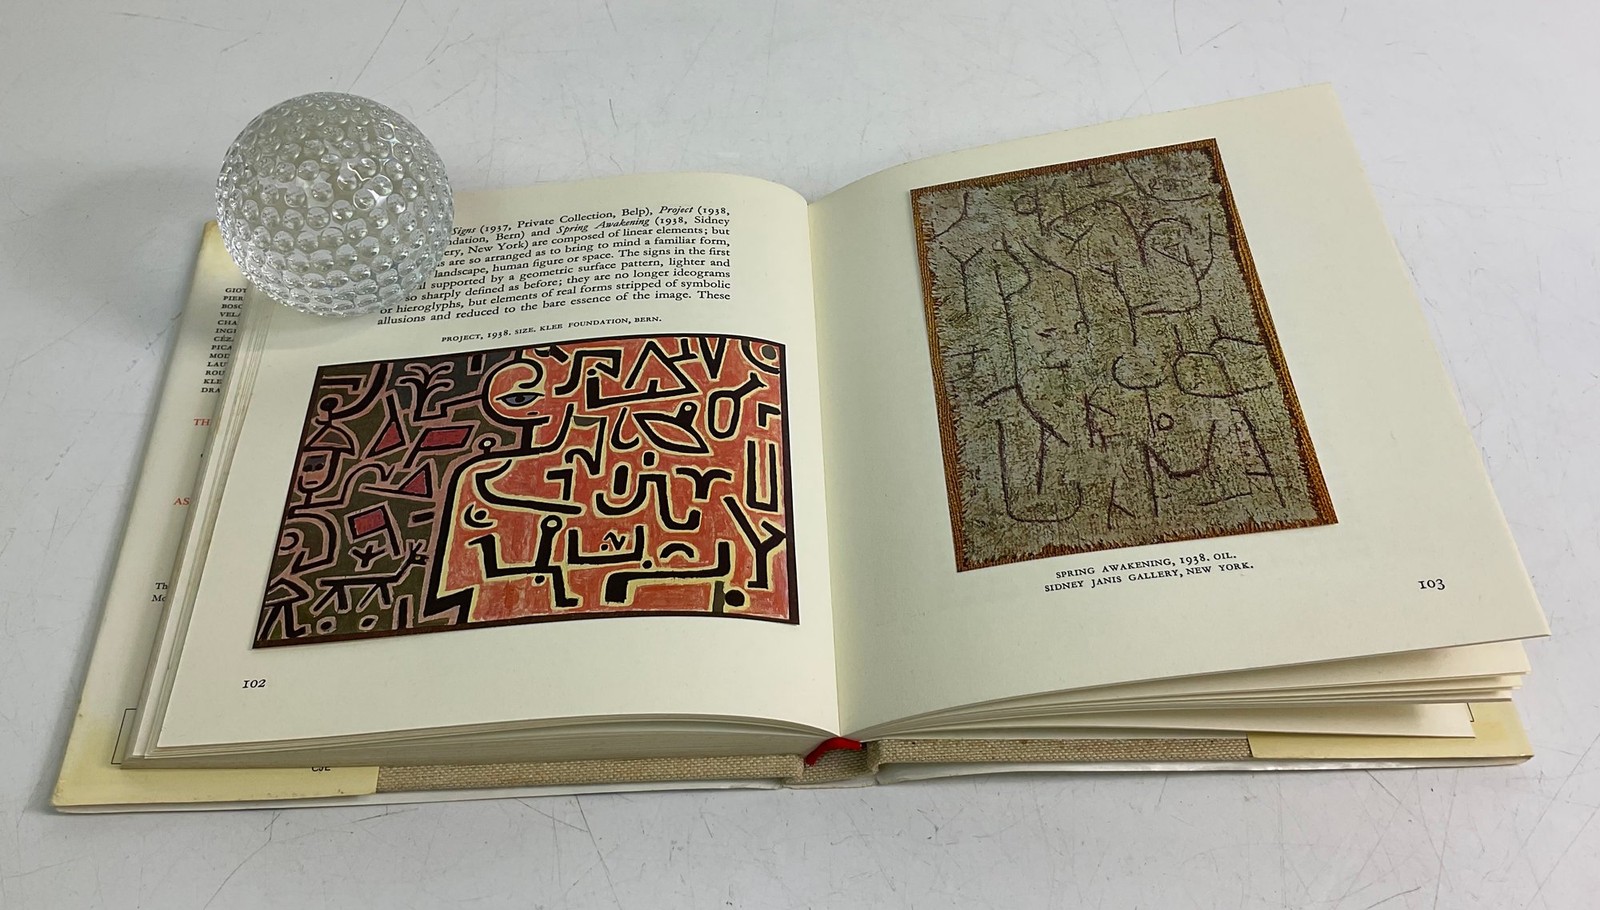 Signs (1937, Private Collection, Belp), Project (1938,
Bern) and Spring Awakening (1938, Sidney
New York) are composed of linear elements; but
are so arranged as to bring to mind a familiar form,
landscape, human figure or space. The signs in the first
supported by a geometric surface pattern, lighter and
so sharply defined as before; they are no longer ideograms
or hieroglyphs, but elements of real forms stripped of symbolic
allusions and reduced to the bare essence of the image. These
PROJECT, 1938. SIZE. KLEE FOUNDATION, BERN.
102
SPRING AWAKENING, 1938. OIL.
SIDNEY JANIS GALLERY, NEW YORK.
103